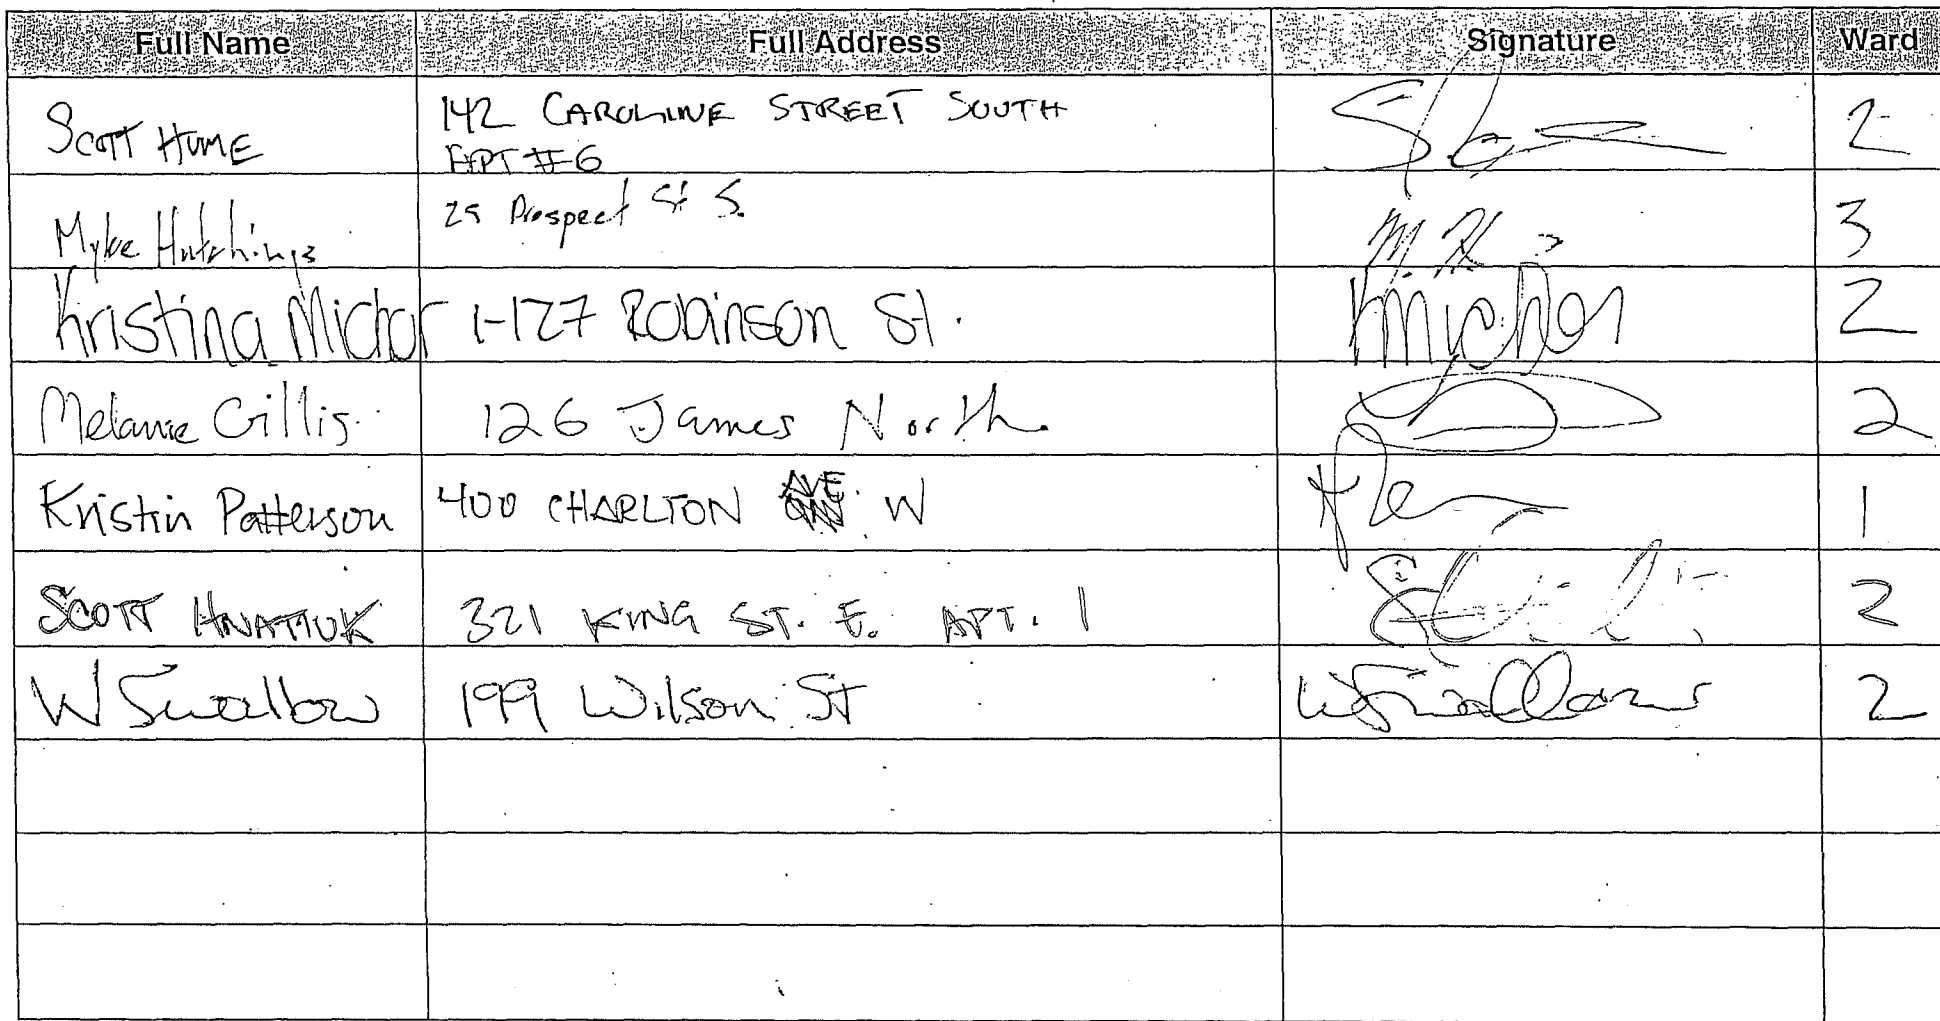 Full Name Full Address Signature Ward
Scott Hume 142 Caroline Street South 2
Apt #6
Myke Hutchings 25 Prospect St S. M. H 3
Kristina Michor 1-127 Robinson St. KMichor 2
Melanie Gillis 126 James North 2
Kristin Patterson 400 CHARLTON AVE W 1
SCOTT HNATIUK 321 KING ST. E. APT. 1 2
W Swallow 199 Wilson St WSwallow 2